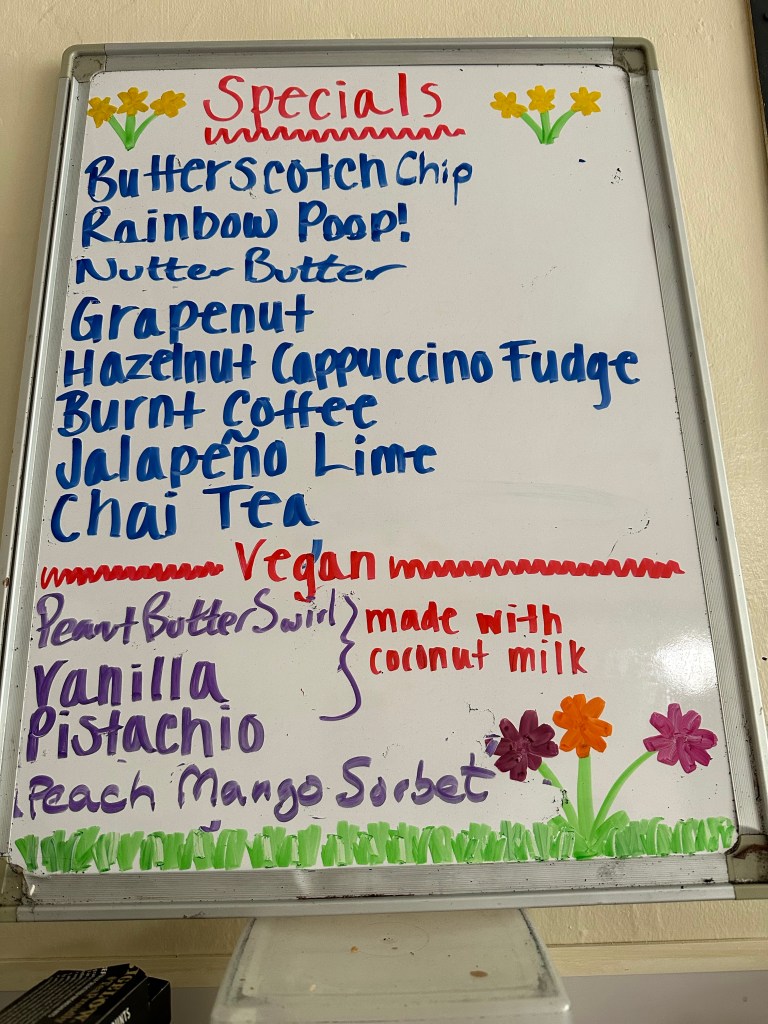 Specials
Butterscotch Chip
Rainbow Poop!
Nutter Butter
Grapenut
Hazelnut Cappuccino Fudge
Burnt Coffee
Jalapeño Lime
Chai Tea
Vegan
Peanut Butter Swirl
Vanilla
Pistachio
made with
coconut milk
Peach Mango Sorbet